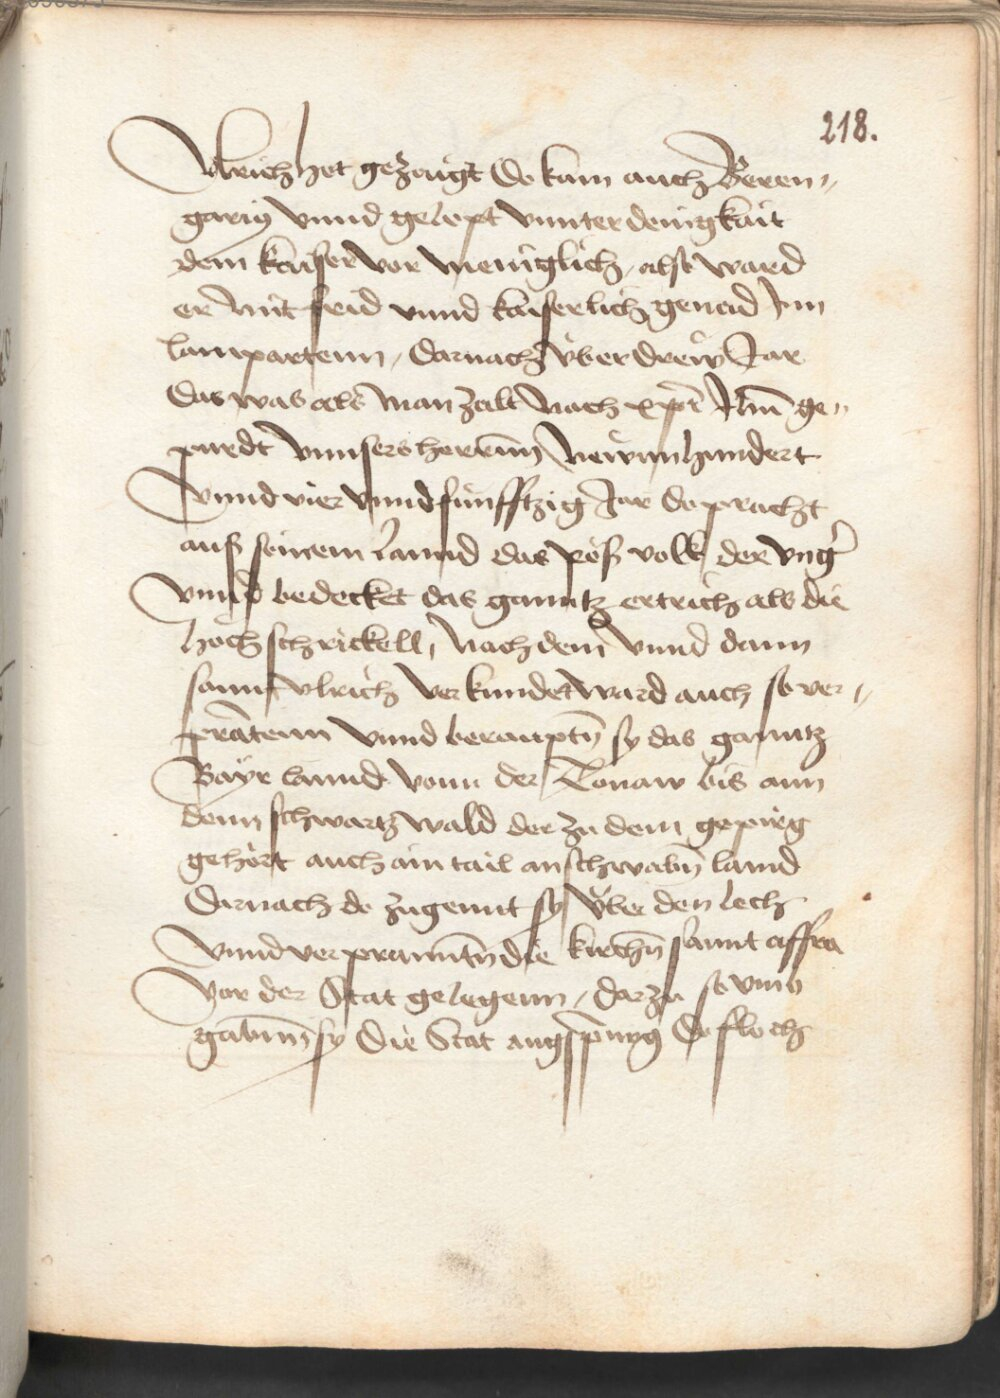 218.
Vlrich het gezeugt Do kam auch Beren„
garius vnnd gelopt vnnterdenigkait
dem kaiser vor meniglich, also ward
er mit frid vnnd kaiserlich genad Jnn
lamparten, Darnach vber drew Jar
Das was als man zalt nach xpi̅ ge„
purdt vnnsers herrnn Newnnhundert
vnnd vier vnnd funfftzig Jar do pracht
auß seinem lannd das pöß volk der vng̅
vnnd bedecket das ganntz ertrich als die
höch schrickell, Nach dem vnnd dann
sannt vlrich verkundet ward auch so ver„
prantenn vnnd beraupten̅ sy das ganntz
Bayr lannd vonn der Tonaw bis ann
denn schwartzwald der zu dem gepirg
gehört auch ain tail an schwabn̅ lannd
Darnach do zugennt sy vber den lech
vnnd verpranntn̅ die kirchn̅ sannt affra
Vor der Stat gelegenn, darzu so vmb
gabnn̅ sy Die Stat augspurg Do floch